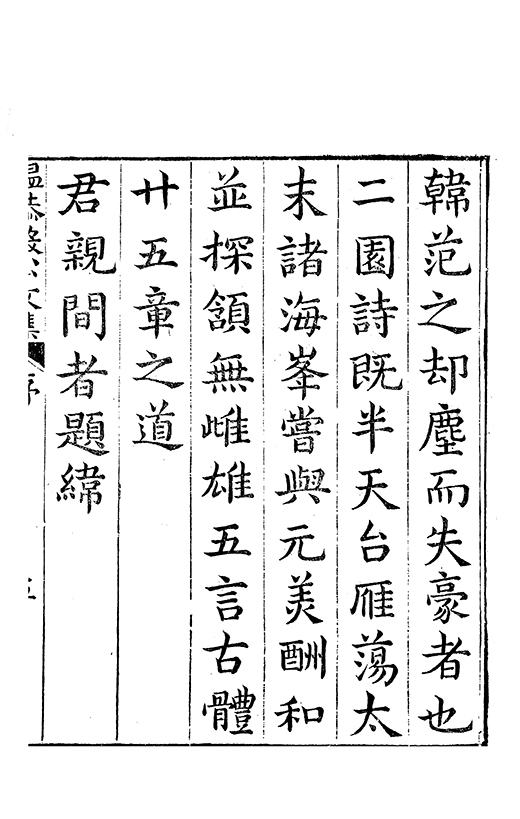 韓范之却塵而失豪者也
二園詩既半天台雁蕩太
末諸海峯嘗與元美酬和
並探頷無雌雄五言古體
廿五章之道
君親間者題緯
序
五